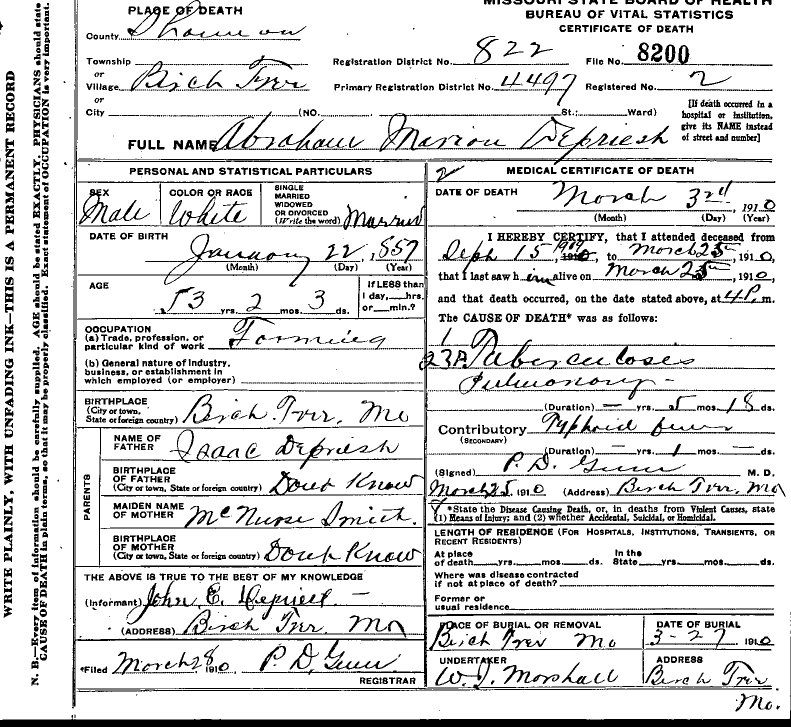 MISSOURI STATE BOARD OF HEALTH
BUREAU OF VITAL STATISTICS
CERTIFICATE OF DEATH
PLACE OF DEATH
County Shannon
Township
or
Village Birch Tree
or
City (NO. St.; Ward)
Registration District No. 822 File No. 8200
Primary Registration District No. 4497 Registered No. 2
[If death occurred in a
hospital or institution,
give its NAME instead
of street and number]
FULL NAME Abraham Marion Depriest
PERSONAL AND STATISTICAL PARTICULARS
SEX
Male
COLOR OR RACE
White
SINGLE
MARRIED
WIDOWED
OR DIVORCED
(Write the word) Married
DATE OF BIRTH
January 22, 1857
(Month) (Day) (Year)
AGE
53 yrs. 2 mos. 3 ds.
If LESS than
1 day, hrs.
or min.?
OCCUPATION
(a) Trade, profession, or
particular kind of work Farming
(b) General nature of industry,
business, or establishment in
which employed (or employer)
BIRTHPLACE
(City or town,
State or foreign country) Birch Tree, Mo
PARENTS
NAME OF
FATHER Isaac Depriest
BIRTHPLACE
OF FATHER
(City or town, State or foreign country) Dont Know
MAIDEN NAME
OF MOTHER McNurse Smith.
BIRTHPLACE
OF MOTHER
(City or town, State or foreign country) Dont Know
THE ABOVE IS TRUE TO THE BEST OF MY KNOWLEDGE
(Informant) John E. Depriest
(ADDRESS) Birch Tree Mo
*Filed March 28 1910 P. D. Gunn
REGISTRAR
2 MEDICAL CERTIFICATE OF DEATH
DATE OF DEATH
March 1910
(Month) (Day) (Year)
I HEREBY CERTIFY, that I attended deceased from
Seph 15, 1909 to March 25, 1910,
that I last saw him alive on March 25, 1910,
and that death occurred, on the date stated above, at 4P. m.
The CAUSE OF DEATH* was as follows:
1
23A Tuberculoses
Pulmonary -
(Duration) — yrs. 5 mos. 18 ds.
Contributory Typhoid fever
(SECONDARY)
(Duration) — yrs. 1 mos. — ds.
(Signed) P. D. Gunn M. D.
March 25, 1910 (Address) Birch Tree, Mo
*State the Disease Causing Death, or, in deaths from Violent Causes, state
(1) Means of Injury; and (2) whether Accidental, Suicidal, or Homicidal.
LENGTH OF RESIDENCE (FOR HOSPITALS, INSTITUTIONS, TRANSIENTS, OR
RECENT RESIDENTS)
At place
of death yrs. mos. ds. In the
State yrs. mos. ds.
Where was disease contracted
if not at place of death?
Former or
usual residence
PLACE OF BURIAL OR REMOVAL
Birch Tree Mo
DATE OF BURIAL
3-27 1910
UNDERTAKER
W. J. Marshall
ADDRESS
Birch Tree
Mo.
WRITE PLAINLY, WITH UNFADING INK—THIS IS A PERMANENT RECORD
N. B.—Every item of information should be carefully supplied. AGE should be stated EXACTLY. PHYSICIANS should state
CAUSE OF DEATH in plain terms, so that it may be properly classified. Exact statement of OCCUPATION is very important.